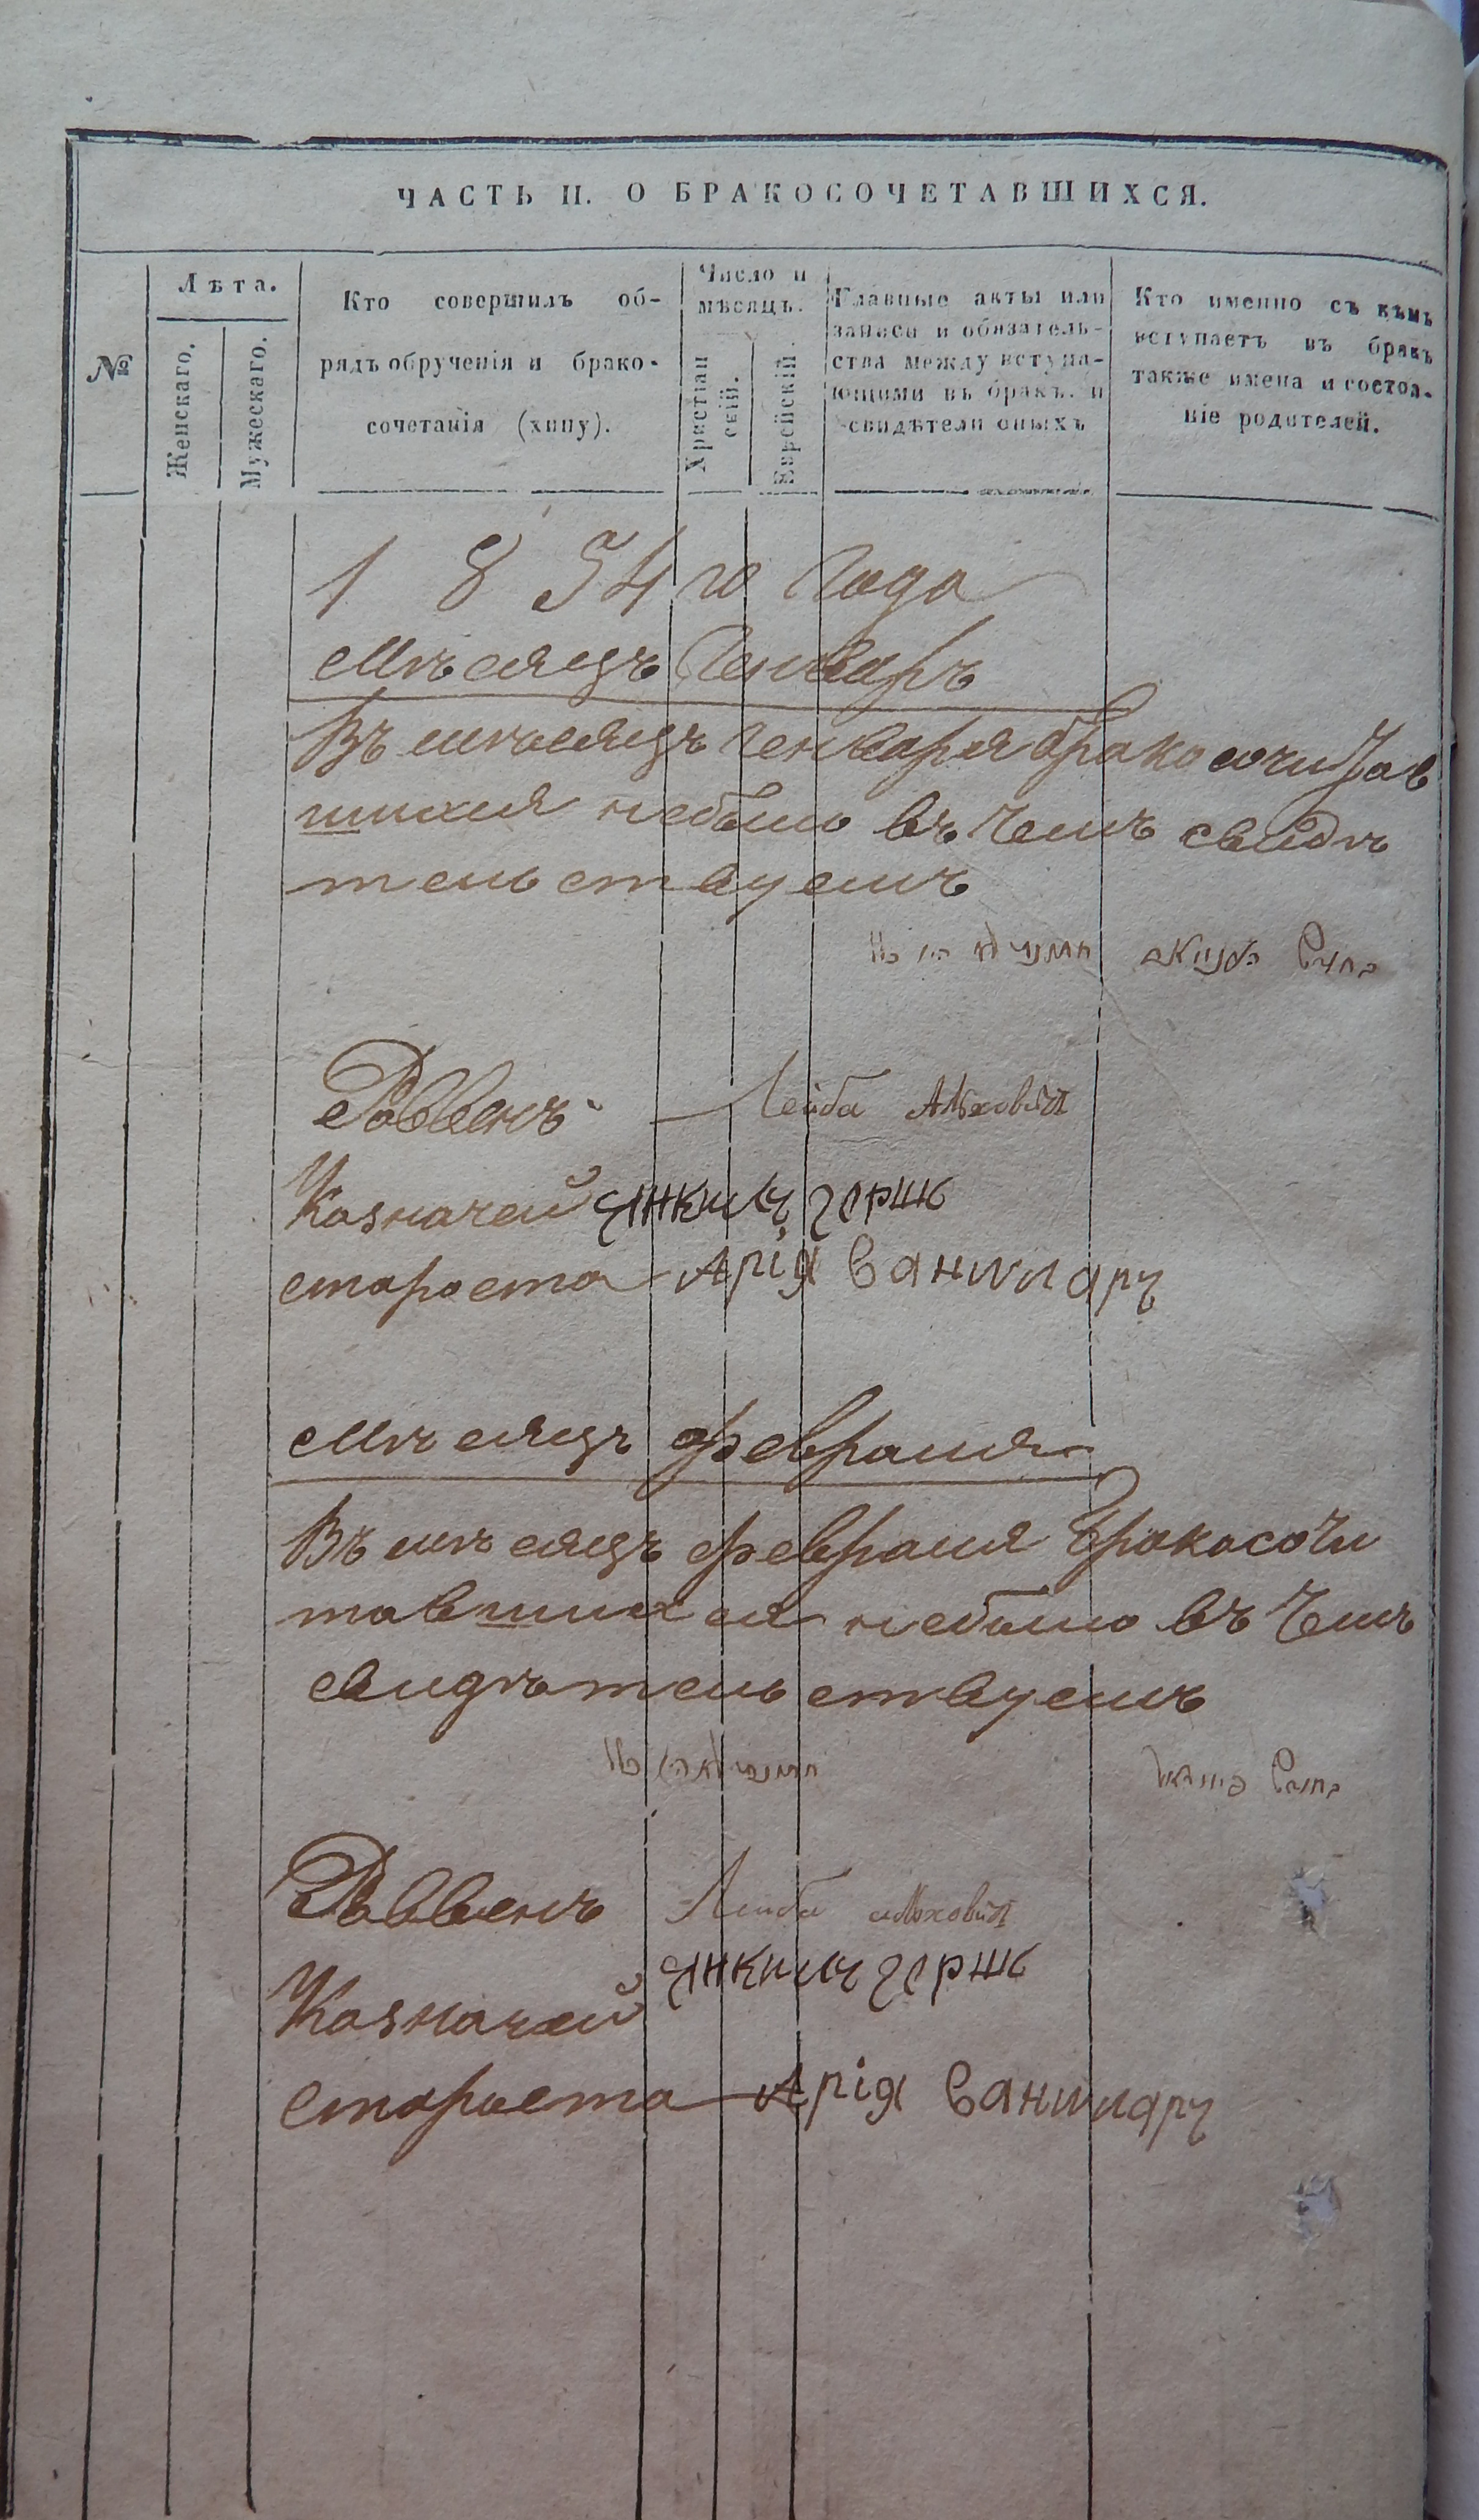 ЧАСТЬ II. О БРАКОСОЧЕТАВШИХСЯ.
№
Лѣта.
Женскаго.
Мужескаго.
Кто совершилъ об-
рядъ обрученія и брако-
сочетанія (хипу).
Число и
мѣсяцъ.
Христіан
скій.
Еврейскій.
Главные акты или
записи и обязатель-
ства между вступа-
ющими въ бракъ. и
свидѣтели оныхъ
Кто именно съ кѣмъ
вступаетъ въ бракъ
также имена и состоя-
ніе родителей.
1854го Года
Мѣсяцъ Генварь
Въ мѣсяцъ Генваря бракосочитав
шихся небыло въ чемъ свидѣ
тельствуемъ
Раввинъ Лейба
Казначей Янкиль Герши
староста Арія
Мѣсяцъ февраля
Въ мѣсяцъ февраля бракосочи
тавшихся небыло въ чемъ
свидѣтельствуемъ
Раввинъ Лейба
Казначей Янкиль Герши
староста Арія